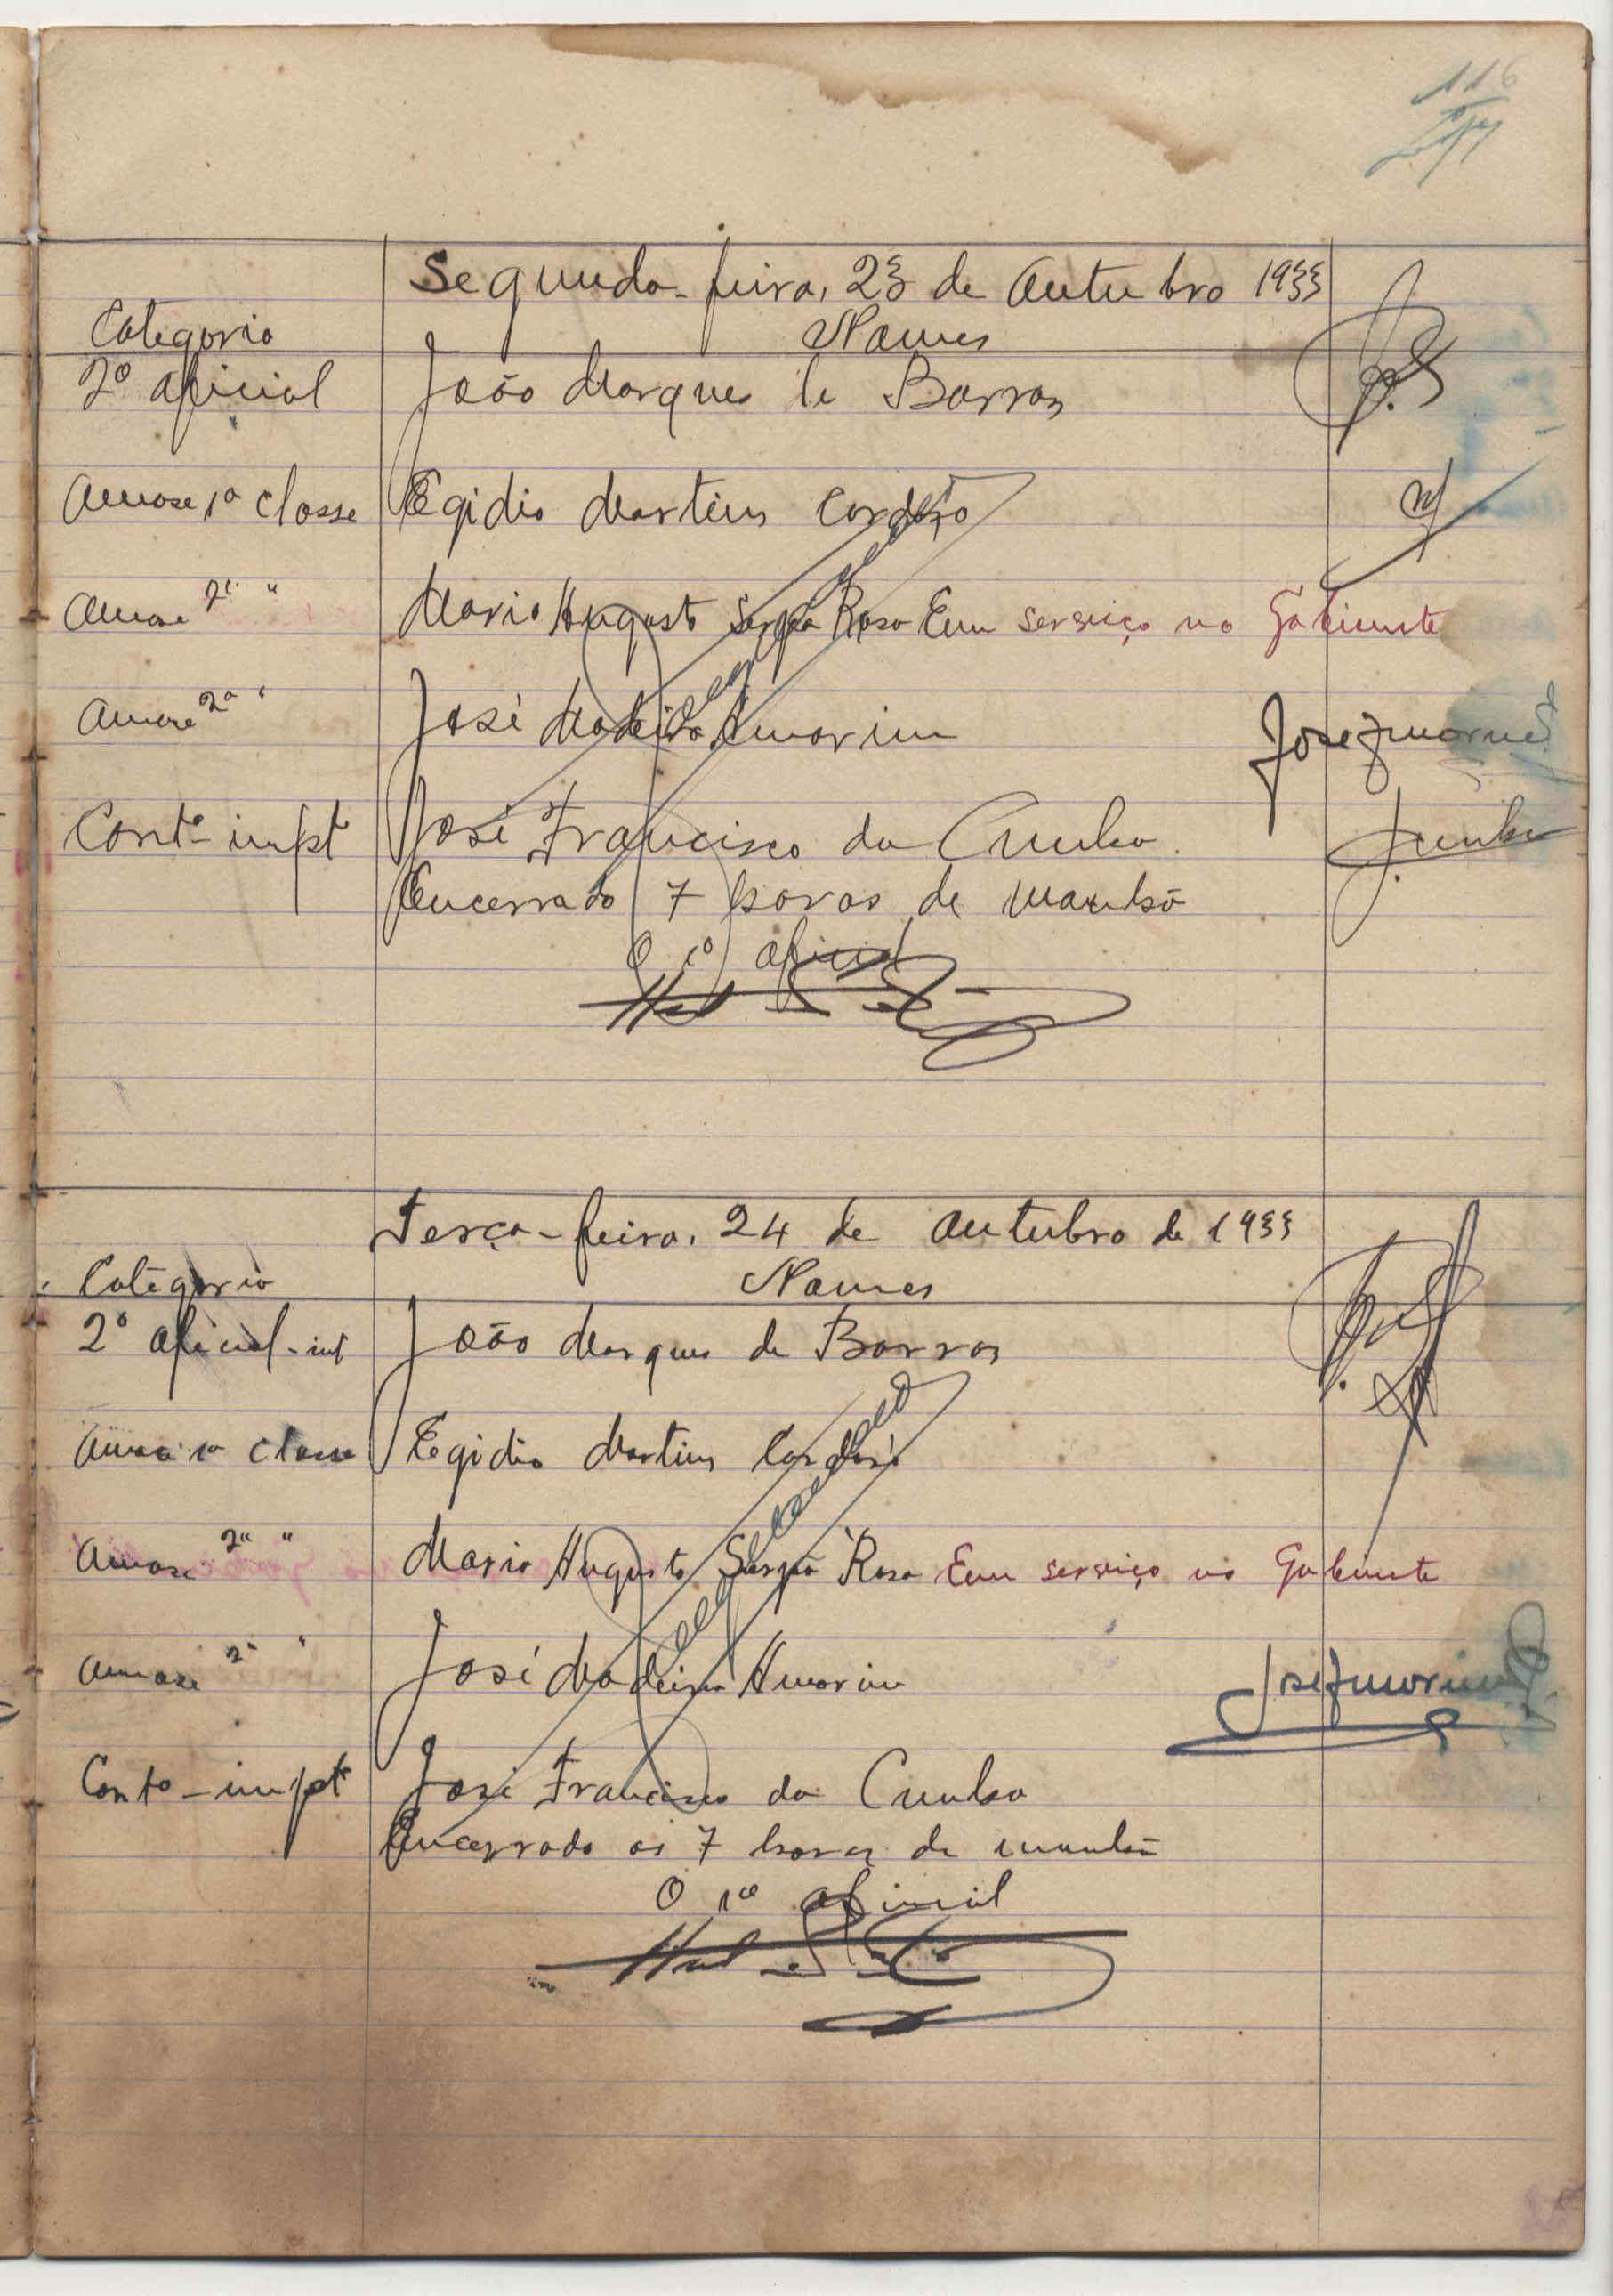 116
Segunda-feira, 23 de Outubro 1933
Categoria Nomes
2º oficial João Marques de Barros
Amase 1ª classe Egidio Martins Cordeiro
Amase 2ª " Mario Augusto Serpa Rosa Em serviço no Gabinete
Amase 2ª " José Madeira Amorim José Amorim
Contº impt José Francisco da Cunha J. Cunha
Encerrado 7 horas de manhã
O 1º oficial
Terça-feira, 24 de Outubro de 1933
Categoria Nomes
2º oficial-int João Marques de Barros
Amase 1ª classe Egidio Martins Cordeiro
Amase 2ª " Mario Augusto Serpa Rosa Em serviço no Gabinete
Amase 2ª " José Madeira Amorim José Amorim
Contº-impt José Francisco da Cunha
Encerrado as 7 horas da manhã
O 1º oficial